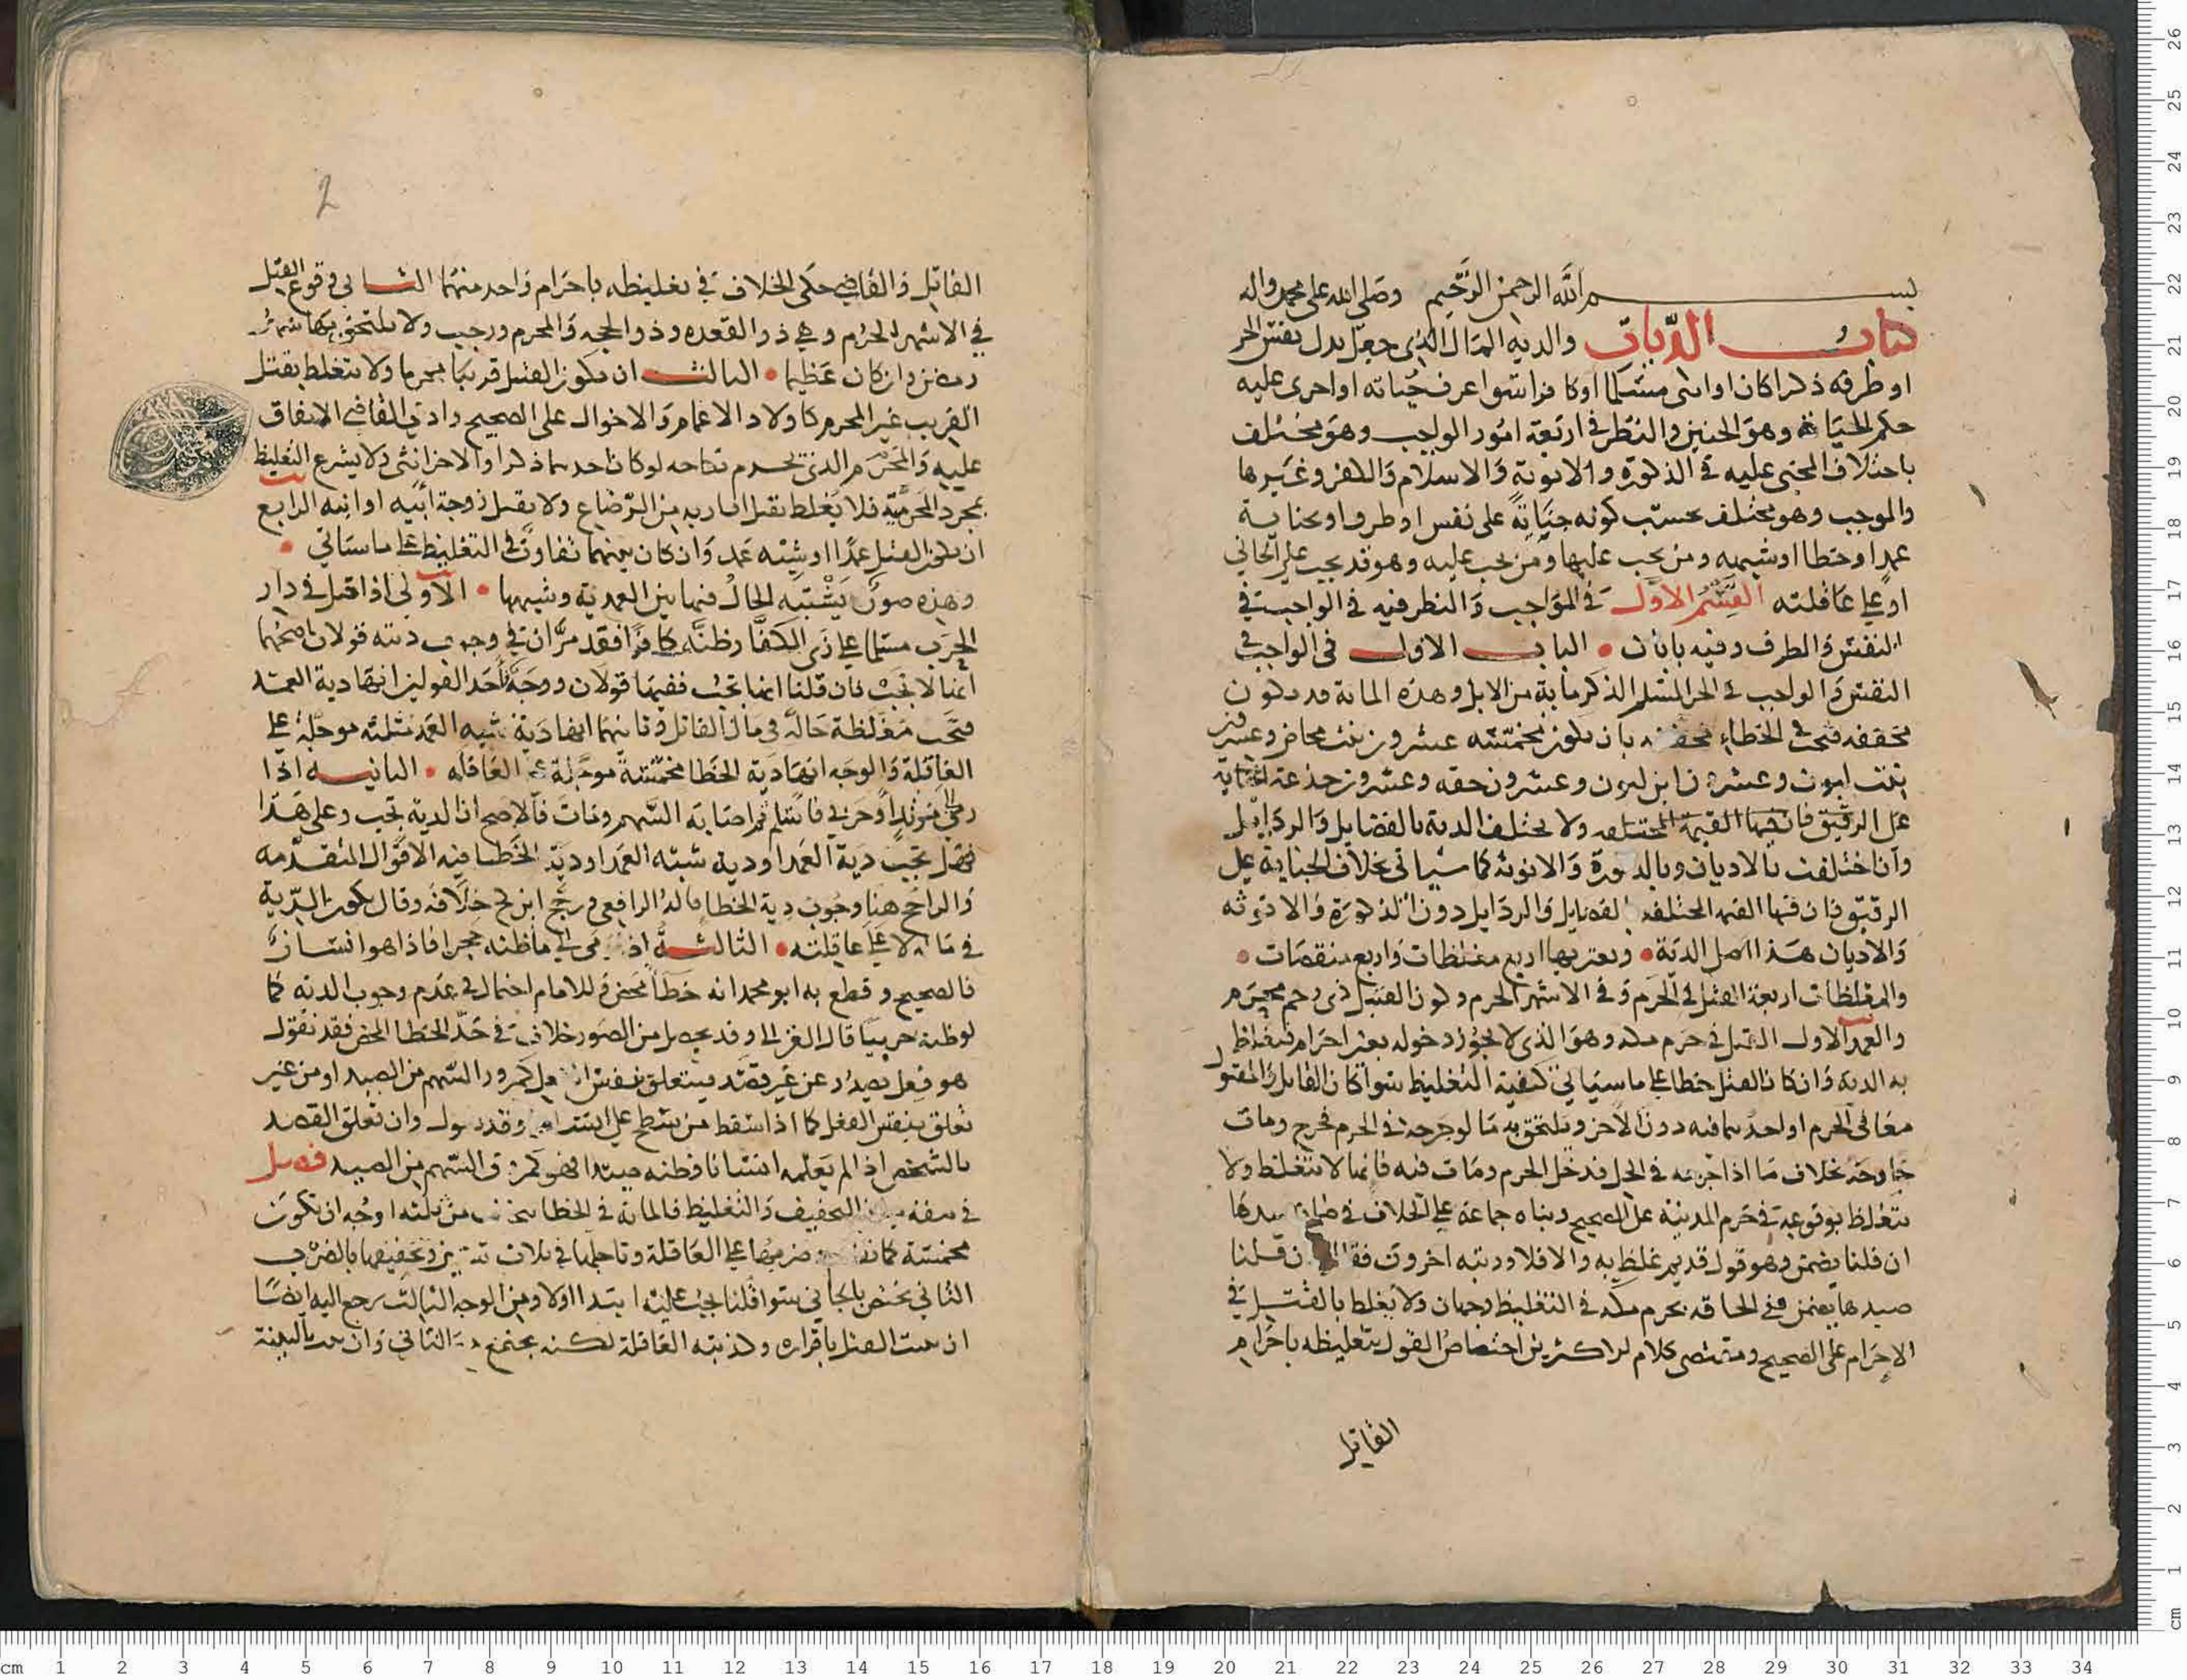 بسم الله الرحمن الرحيم وصلى الله على محمد واله
كتاب الديات والديه المال الذى جعل بدل نفس الحر
او طرفه ذكرا كان او انثى مسلما او كافرا سوا عرف حياته او اجرى عليه
حكم الحياة وهو الجنين والنظر فى اربعة امور الواجب وهو مختلف
باختلاف المجنى عليه فى الذكورة والانوثة والاسلام والكفر وغيرها
والموجب وهو مختلف بحسب كونه جناية على نفس او طرف او بجناية
عمدا او خطا او شبهه ومن يجب عليها ومن يجب عليه وهو قد يجب على الجانى
او على عاقلته القسم الاول فى المواجب والنظر فيه فى الواجب فى
النفس والطرف وفيه بابان الباب الاول فى الواجب فى
النفس والواجب فى الحر المسلم الذكر ماية من الابل وهذه الماية قد تكون
مخففه فتجب فى الخطاء مخففه بان تكون مخمسه عشرون بنت مخاض وعشرون
بنت لبون وعشرون ابن لبون وعشرون حقه وعشرون جذعه
على الرقيق فان فيها القيمة المختلفه ولا يختلف الدية بالفضايل والرذايل
وان اختلفت بالاديان وبالذكورة والانوثة كما سياتى بخلاف الجناية على
الرقيق فان فيها القيمه المختلفه بالفضايل والرذايل دون الذكورة والانوثه
والاديان هذا اصل الدية ويعتريها اربع مغلظات واربع منقصات
والمغلظات اربعة القتل فى الحرم وفى الاشهر الحرم وكون القتيل ذى رحم محرم
والعمد الاول القتل فى حرم مكه وهو الذى لا يجوز دخوله بغير احرام فيغلظ
به الدية وان كان القتل خطا على ما سياتى كيفية التغليظ سوا كان القاتل والمقتول
معا فى الحرم او احدهما فيه دون الاخر ويلتحق به ما لو جرحه فى الحرم فخرج ومات
خارجه بخلاف ما اذا جرحه فى الحل فدخل الحرم ومات فيه فانها لا تتغلظ ولا
تتغلظ بوقوعه فى حرم المدينة على الصحيح وبناه جماعة على الخلاف فى ضمان صيدها
ان قلنا يضمن وهو قول قديم غلظ به والا فلا ورتبه اخرون فقالوا ان قلنا
صيدها يضمن ففى الحاقه بحرم مكه فى التغليظ وجهان ولا يغلظ بالقتل فى
الاحرام على الصحيح ومقتضى كلام الاكثرين اختصاص القول بتغليظه باحرام
القاتل
2
القاتل والقاضى حكى الخلاف فى تغليظه باحرام واحد منهما الثانى وقوع القتل
فى الاشهر الحرم وهى ذو القعده وذو الحجه والمحرم ورجب ولا يلتحق بها شهر
رمضان وان كان عظيما الثالث ان يكون القتيل قريبا محرما ولا تتغلظ بقتل
القريب غير المحرم كاولاد الاعمام والاخوال على الصحيح وادعى القاضى الاتفاق
عليه والمحرم الذى يحرم نكاحه لو كان احدهما ذكرا والاخر انثى ولا يشرع التغليظ
بمجرد المحرمية فلا يغلظ بقتل اقاربه من الرضاع ولا بقتل زوجة ابيه او ابنه الرابع
ان يكون القتل عمدا او شبه عمد وان كان بينهما تفاوت فى التغليظ على ما سياتى
وهذه صور يشتبه الحال فيها بين العمدية وشبهها الاولى اذا قتل فى دار
الحرب مسلما على زى الكفار وظنه كافرا فقد مر ان فى وجوب ديته قولان اصحهما
انها لا تجب فان قلنا انها تجب ففيها قولان ووجه احد القولين انها دية العمد
فتجب مغلظة حالة فى مال القاتل وثانيهما انها دية شبه العمد مثلثه موجلة على
العاقلة والوجه انها دية الخطا مخمسة موجلة على العاقله الثانيه اذا
رمى الى مرتد او حربى فاسلم ثم اصابه السهم ومات فالاصح ان الدية تجب وعلى هذا
فهل تجب دية العمد او دية شبه العمد او دية الخطا فيه الاقوال المتقدمه
والراجح هنا وجوب دية الخطا قاله الرافعى ورجح ابن كج خلافه وقال تكون الدية
فى ماله لا على عاقلته الثالثة اذا رمى الى ما ظنه حجرا فاذا هو انسان
فالصحيح وقطع به ابو محمد انه خطا محض وللامام احتمال فى عدم وجوب الديه كما
لو ظنه حربيا قال الغزالى وقد يحصل من الصور خلاف فى حد الخطا المحض فقد نقول
هو فعل يصدر عن غير قصد يتعلق بنفس الفعل كمرور السهم من الصيد او من غير
تعلق بنفس الفعل كما اذا سقط من سطح على انسان وقد نقول وان تعلق القصد
بالشخص اذا لم يعلمه انسانا وظنه صيدا فهو كمروق السهم من الصيد فصل
فى صفة التخفيف والتغليظ فالماية فى الخطا تخفف من ثلثه اوجه ان تكون
مخمسة كما تقدم وضربها على العاقلة وتاجلها فى ثلاث سنين وتخفيفها بالضرب
الثانى تختص بالجانى سوا قلنا يجب عليه ابتدا اولا ومن الوجه الثالث يرجع اليه ايضا
ان ثبت القتل باقراره وكذبته العاقلة لكنه يجتمع مع الثانى وان ثبت بالبينة